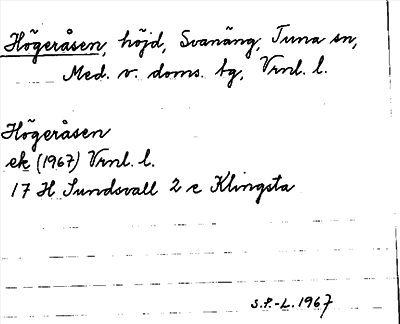 Högeråsen, höjd, Svanäng, Tuna sn,
Med. v. doms. tg, Vrnl. l.
Högeråsen
ek (1967) Vrnl. l.
17 H Sundsvall 2 c Klingsta
S.P.-L. 1967